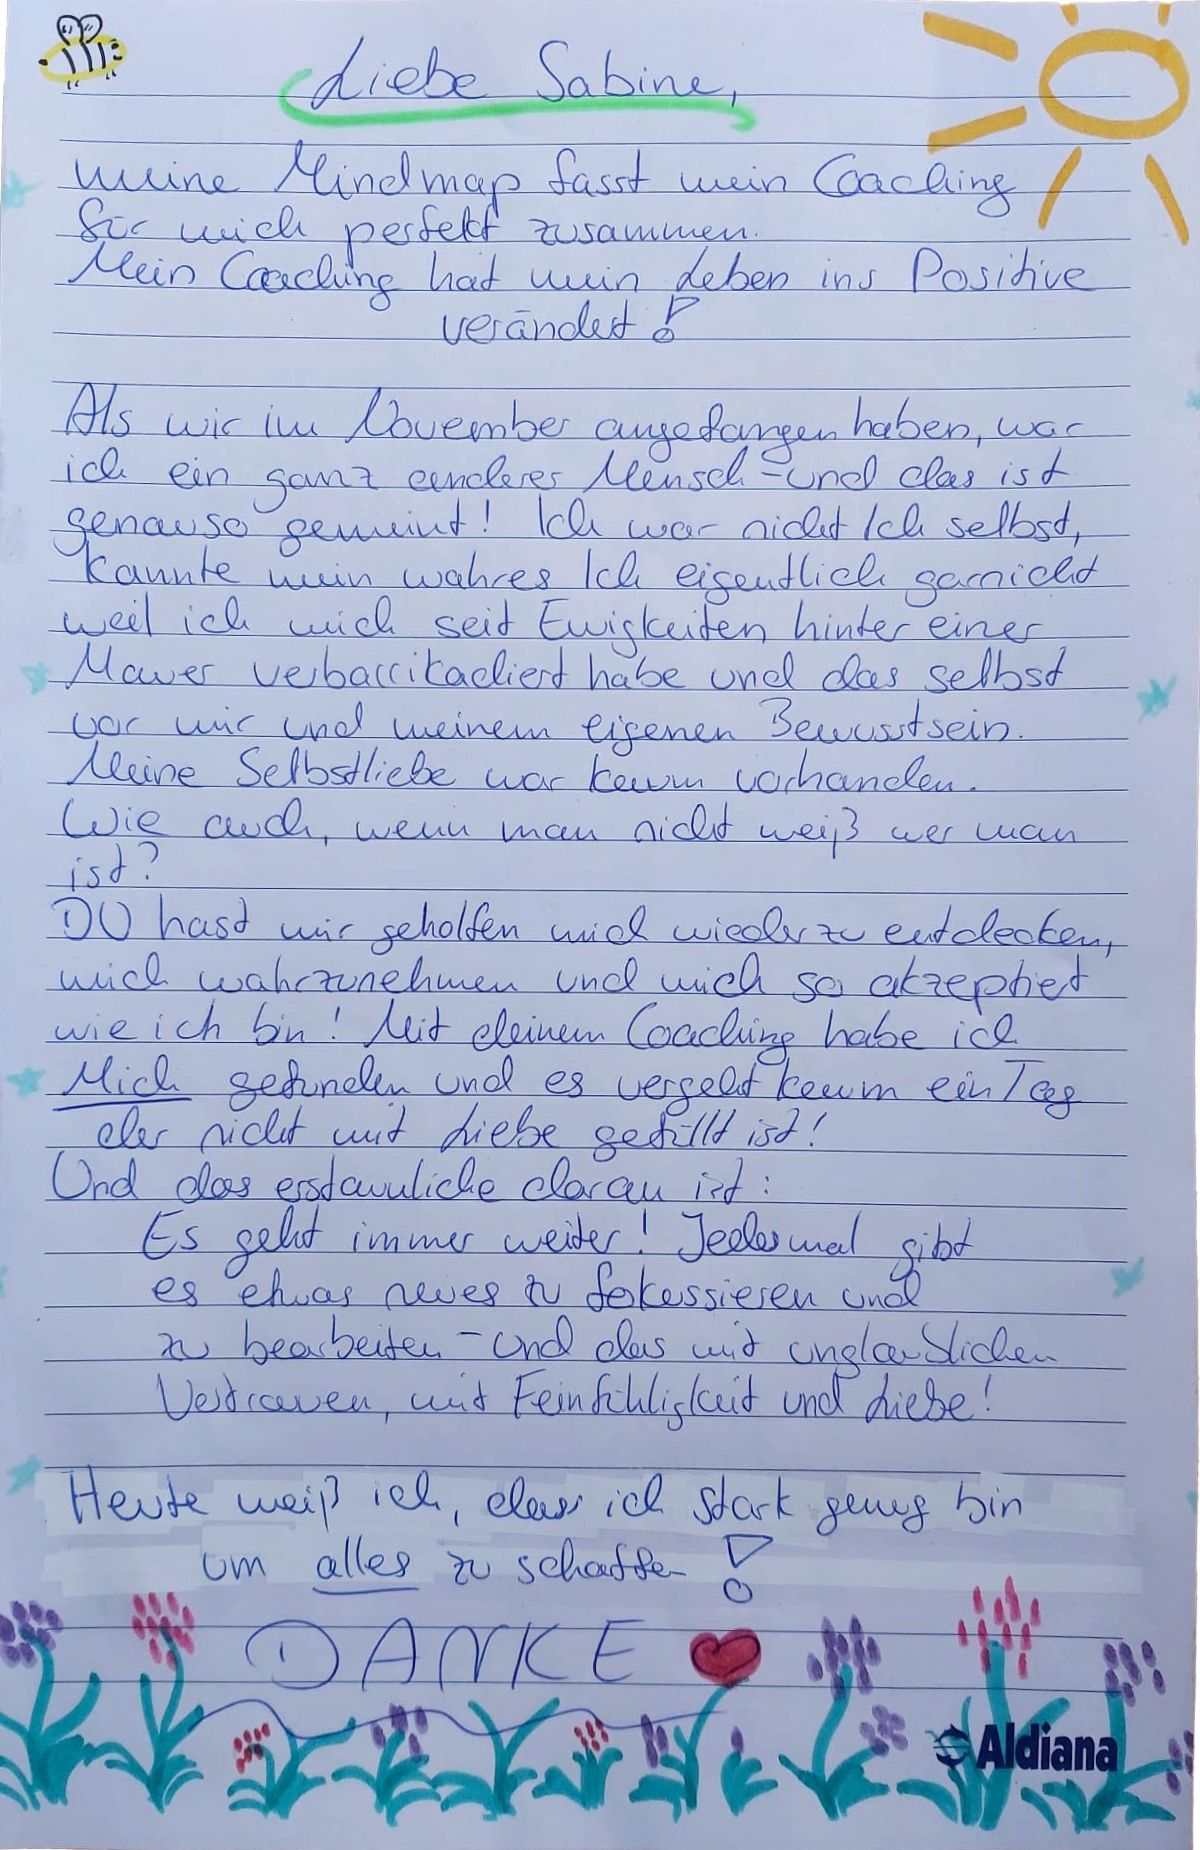 Liebe Sabine,
meine Mindmap fasst mein Coaching
für mich perfekt zusammen.
Mein Coaching hat mein Leben ins Positive
verändert!
Als wir im November angefangen haben, war
ich ein ganz anderer Mensch - und das ist
genauso gemeint! Ich war nicht Ich selbst,
kannte mein wahres Ich eigentlich garnicht
weil ich mich seit Ewigkeiten hinter einer
Mauer verbarrikadiert habe und das selbst
vor mir und meinem eigenen Bewusstsein.
Meine Selbstliebe war kaum vorhanden.
Wie auch, wenn man nicht weiß wer man
ist?
DU hast mir geholfen mich wieder zu entdecken,
mich wahrzunehmen und mich so akzeptiert
wie ich bin! Mit deinem Coaching habe ich
Mich gefunden und es vergeht kaum ein Tag
der nicht mit Liebe gefüllt ist!
Und das erstaunliche daran ist:
Es geht immer weiter! Jedesmal gibt
es etwas neues zu fokussieren und
zu bearbeiten - und das mit unglaublichen
Vertrauen, mit Feinfühligkeit und Liebe!
Heute weiß ich, das ich stark genug bin
um alles zu schaffen!
DANKE
Aldiana